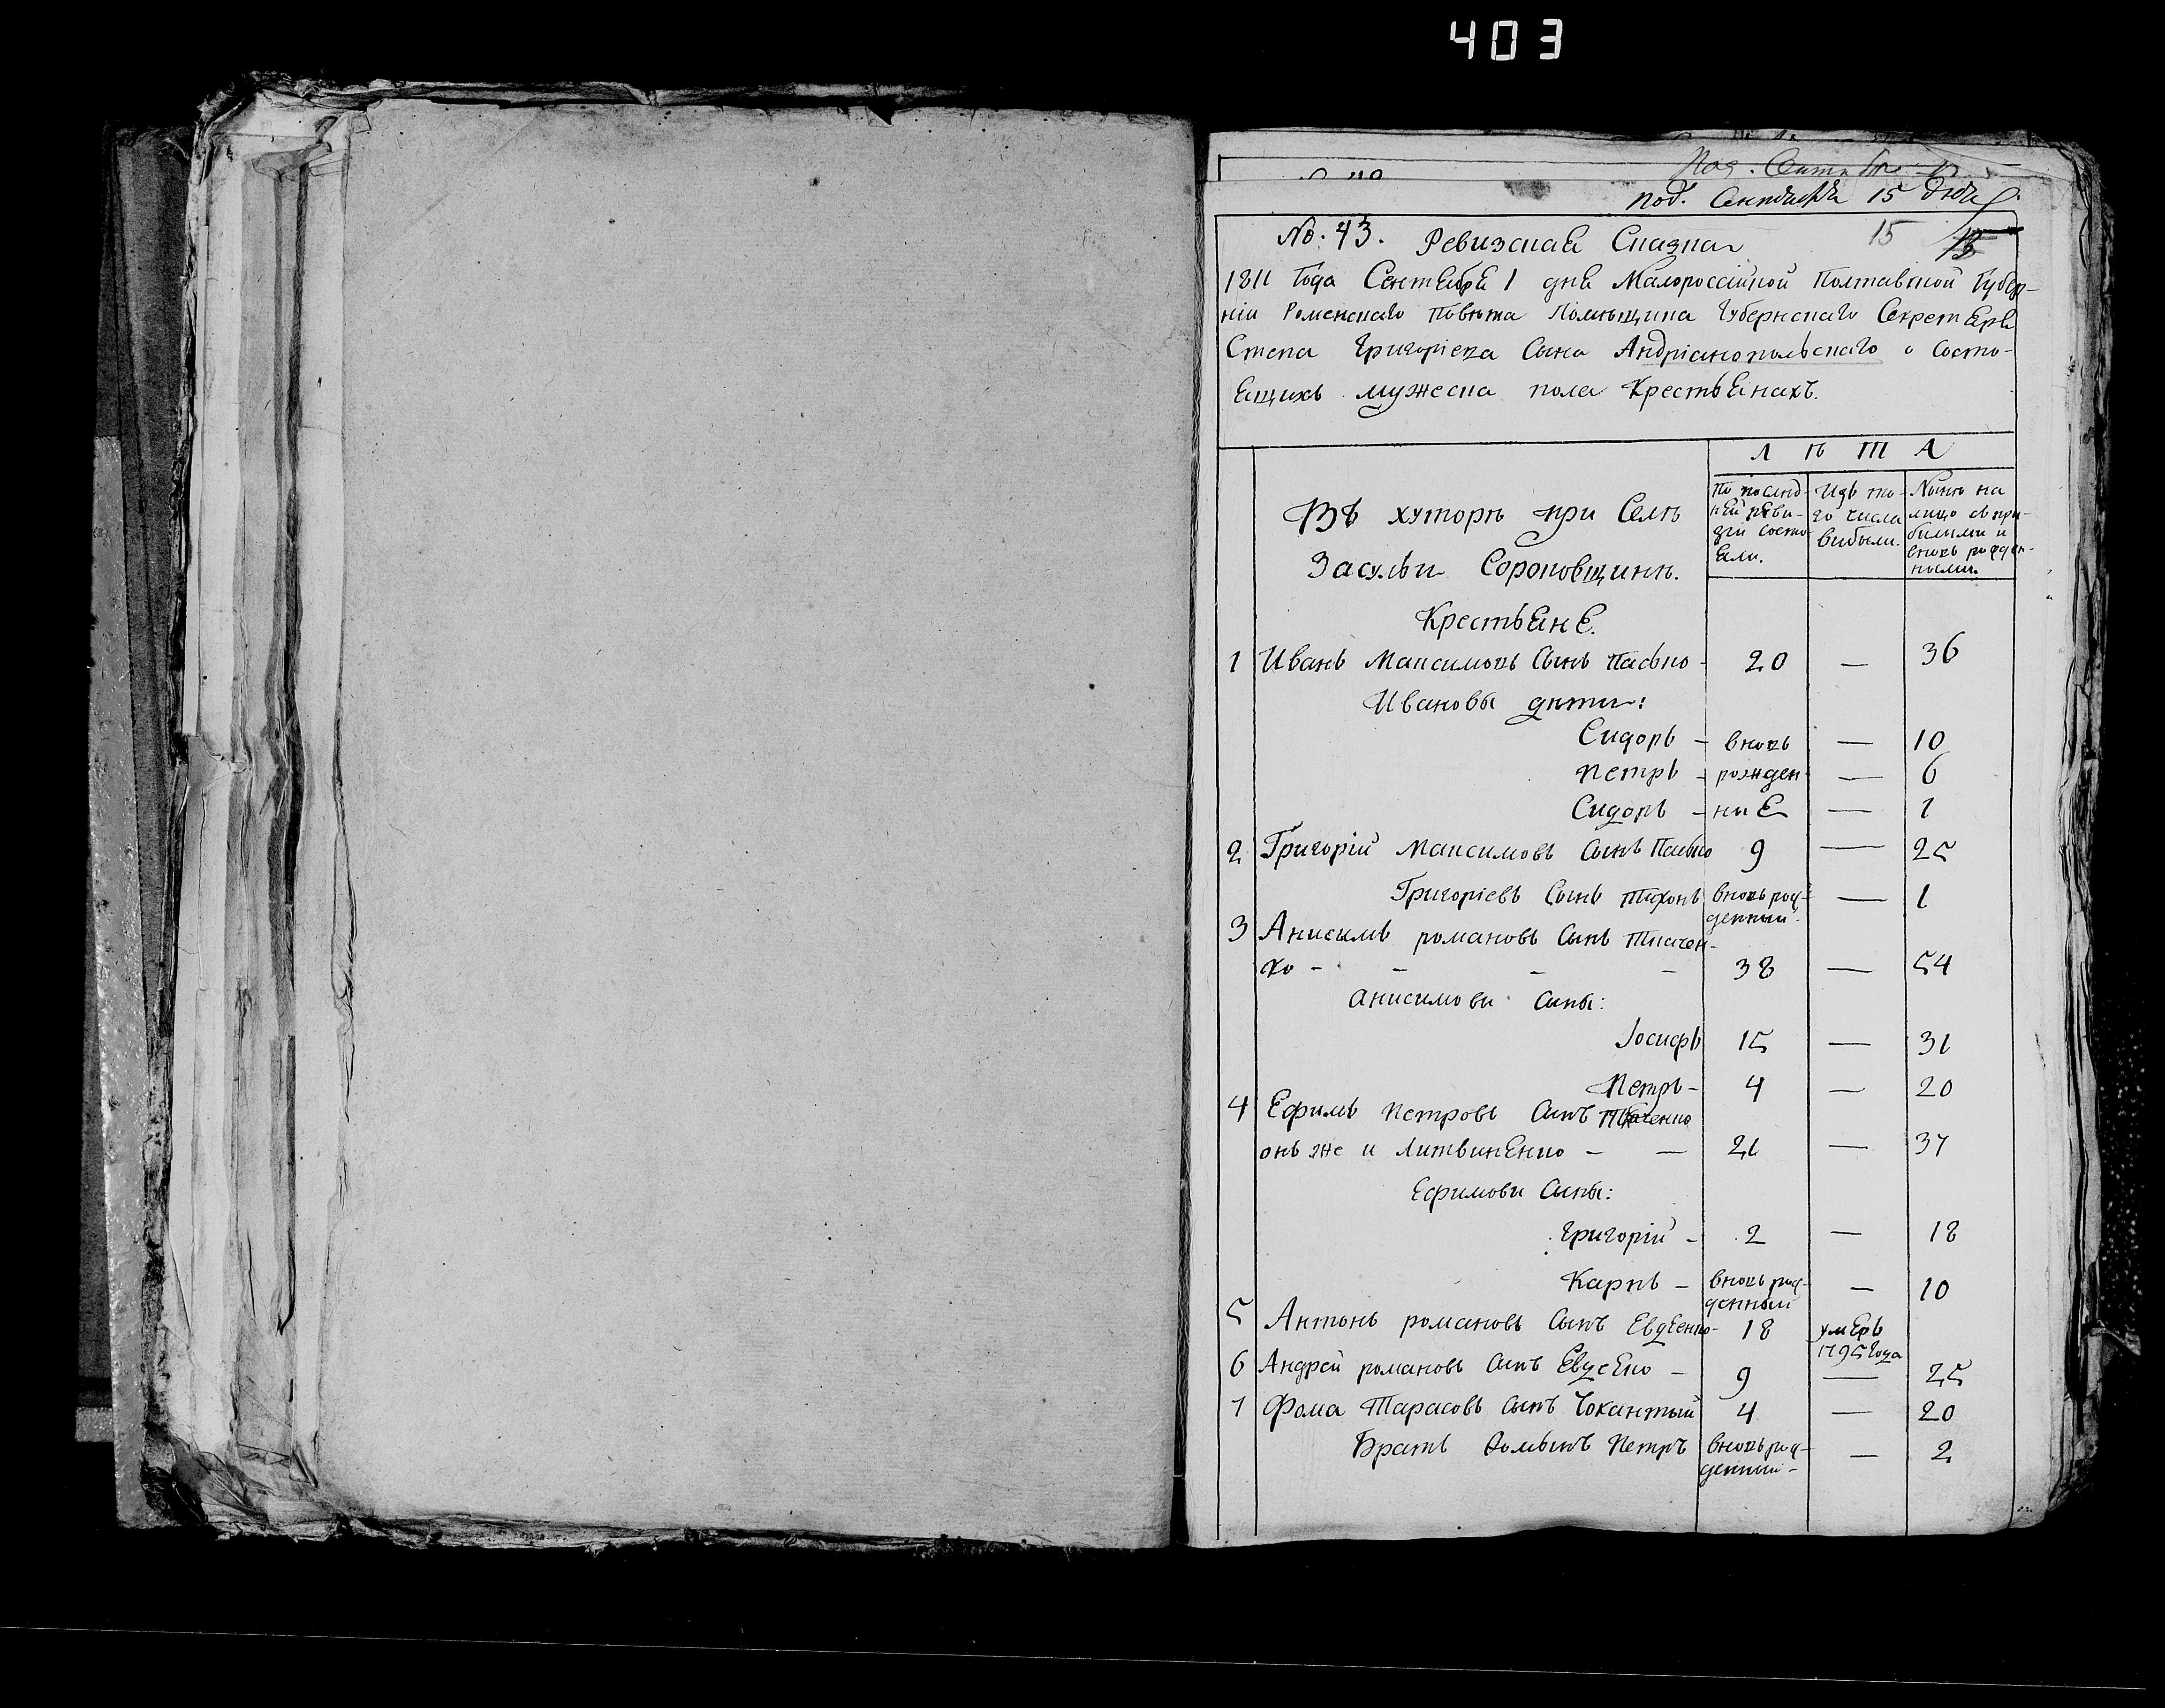 403
под. Сентября 15 дня
No. 43. Ревизская Сказка 15
1811 Года Сентября 1 дня Малороссійской Полтавской Губер-
ніи Роменскаго Повѣта Помѣщика Губернскаго Секретаря
Степа Григоріева Сына Андріанопольскаго о состо-
ящихъ мужеска пола Крестьянахъ.
Л ѣ т а
Въ хуторѣ при Селѣ
Засульи Сороковщинѣ.
По послѣд-
ней реви-
зіи состо
яли.
Изъ то-
го числа
выбыли.
Нынѣ на
лицо съ при-
былыми и
вновь рожден-
ными.
Крестьяне.
1 Иванъ Максимовъ Сынъ Пасько - 20 — 36
Ивановы дѣти:
Сидоръ - вновь — 10
Петръ - рожден- — 6
Сидоръ - ные — 1
2 Григорій Максимовъ Сынъ Пасько 9 — 25
Григоріевъ Сынъ Тихонъ вновь рож- — 1
денный.
3 Анисимъ романовъ Сынъ Ткачен-
ко - - - - 38 — 54
Анисимови Сыны:
Іосифъ 15 — 31
Петръ - 4 — 20
4 Ефимъ Петровъ Сынъ Ткаченко
онъ же и Литвиненко - — 21 — 37
Ефимови Сыны:
Григорій - 2 — 18
Карпъ - вновь рож- — 10
денный
5 Антонъ романовъ Сынъ Евдеенко- 18 умеръ
1795 Года
6 Андрей романовъ Сынъ - 9 — 25
7 Фома Тарасовъ Сынъ 4 — 20
Братъ Фоминъ Петръ вновь рож- — 2
денный -